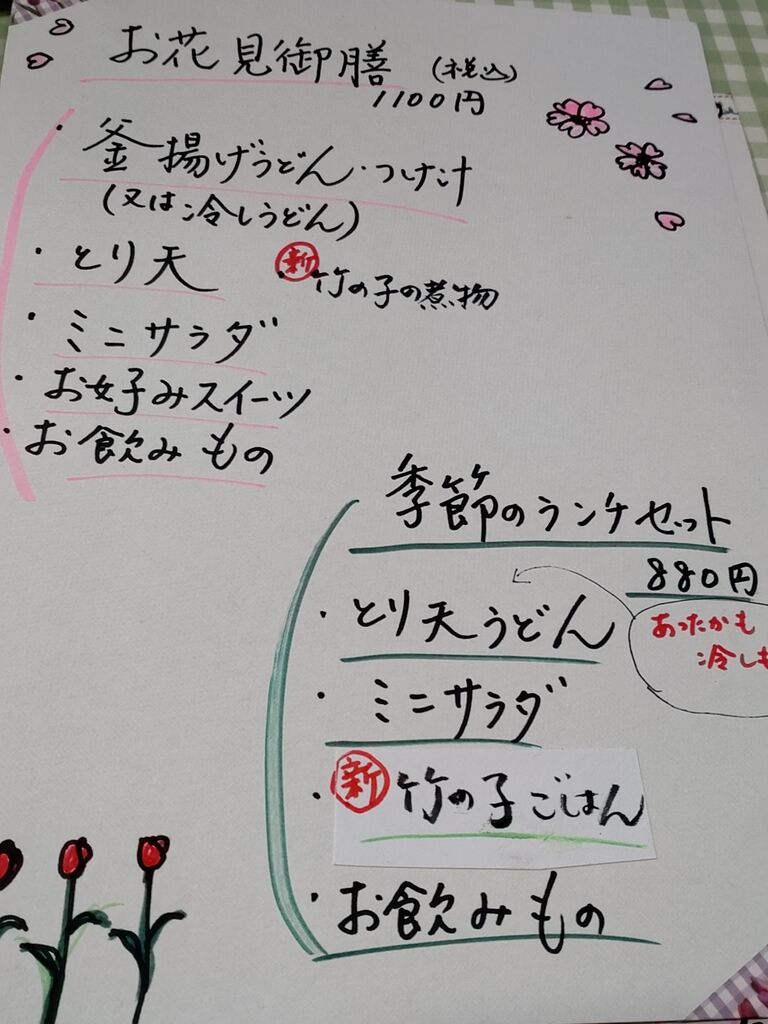 お花見御膳 (税込)
1100円
・釜揚げうどん・つけ汁
(又は冷しうどん)
・とり天
新・竹の子の煮物
・ミニサラダ
・お好みスイーツ
・お飲みもの
季節のランチセット
880円
・とり天うどん
あったかも
冷しも
・ミニサラダ
・新 竹の子ごはん
・お飲みもの